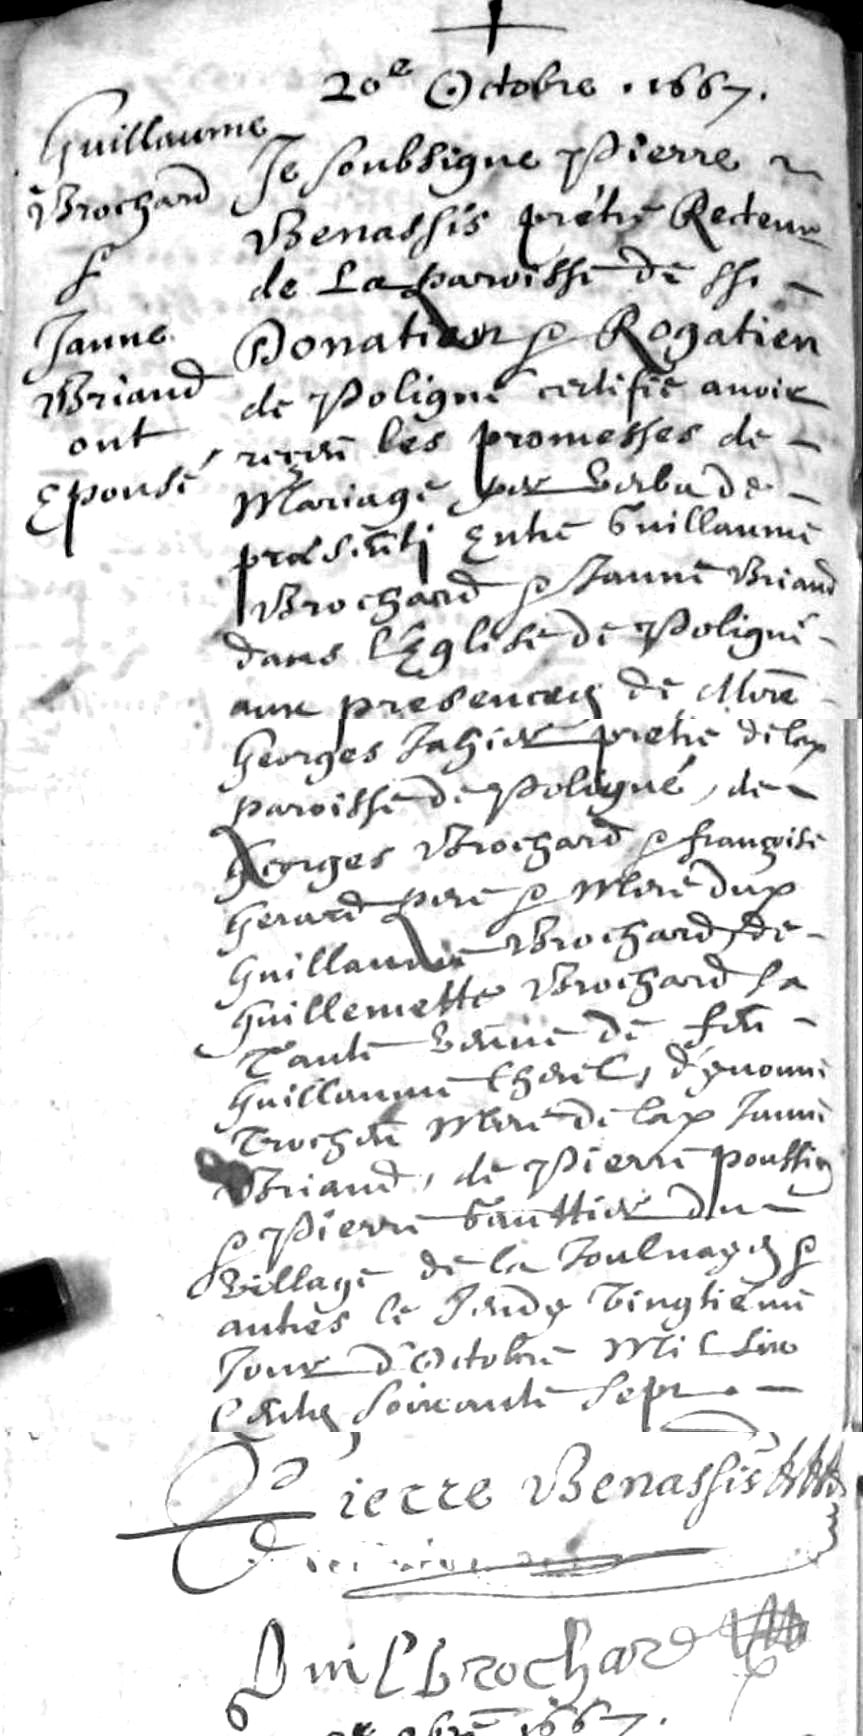 20e Octobre . 1667.
Guillaume
Brochard
&
Janne
Briand
ont
Epousé
Je soubsigné Pierre
Benassis prêtre Recteur
de La paroisse de sst
Donatien & Rogatien
de Poligné certifie avoir
receu les promesses de
Mariage par verba de
præsenti Entre Guillaume
Brochard & Janne Briand
dans l'Eglise de Poligné
aux presences de Mre
Georges Jahier pretre de lap
paroisse de Poligné, de
Georges Brochard & françoise
Gerard pere & Mere dup
Guillaume Brochard, de
Guillemette Brochard sa
Tante veuve de feu
Guillaume
Trochu Mere de lap Janne
Briand, de Pierre poussin
& Pierre Gaultier du
village de la &
autres le Jeudy Vingtiéme
Jour d'Octobre Mil six
cents soixante sept .
Pierre Benassis
Guil brochard
1667.